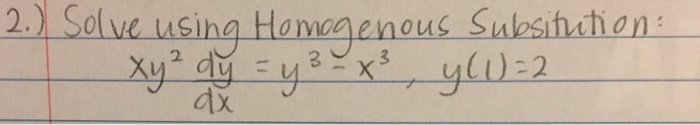 2.) Solve using Homogenous Subsitution:
xy² dy/dx = y³ - x³, y(1)=2